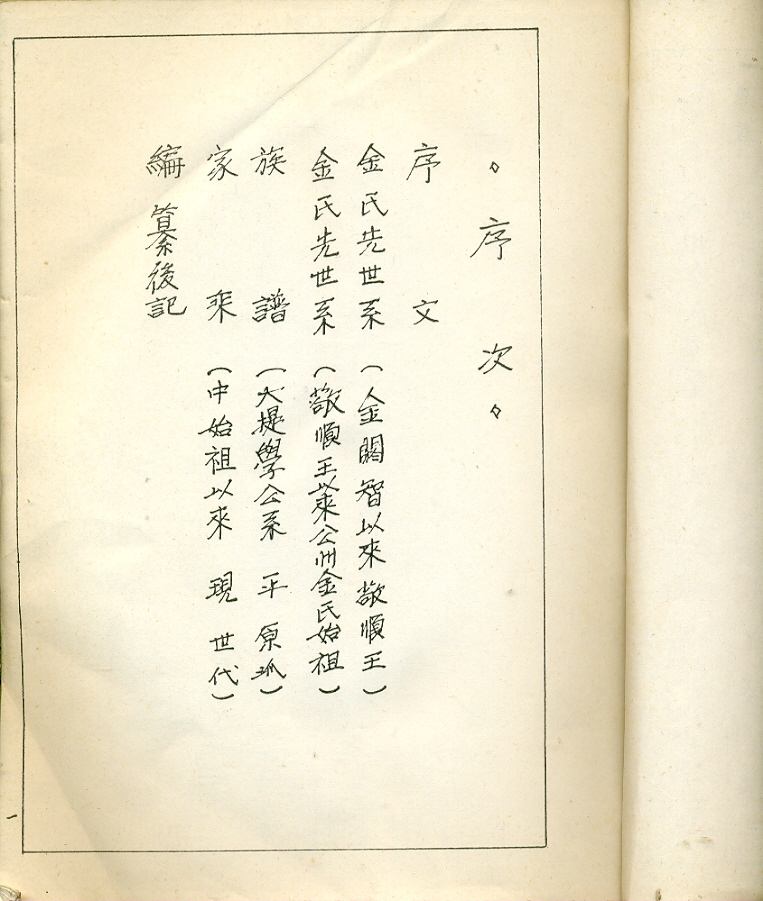 ◇ 序次 ◇
序文
金氏先世系（金閼智以來敬順王）
金氏先世系（敬順王以來公州金氏始祖）
族譜（大提學公系 平原派）
家乘（中始祖以來 現世代）
編纂後記